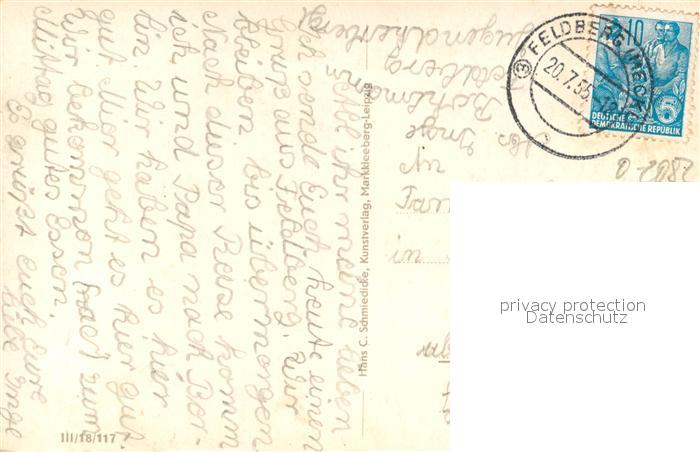 Abs. Inge
Bohlmann
Feldberg
Jugendherberge
Ihr meine Lieben
Ich sende Euch heute einen
Gruß aus Feldberg. Wir
bleiben bis übermorgen
Nach dieser Reise komm
ich und Papa nach Ber-
lin. Wir haben es hier
gut. Uns geht es hier gut
Wir bekommen zum
Mittag gutes Essen.
Es grüßt euch eure
liebe Inge
Hans C. Schmiedicke, Kunstverlag, Markkleeberg-Leipzig
III/18/117
FELDBERG (MECKL)
20.7.55
10
DEUTSCHE
DEMOKRATISCHE REPUBLIK
An
Fam
in
privacy protection
Datenschutz